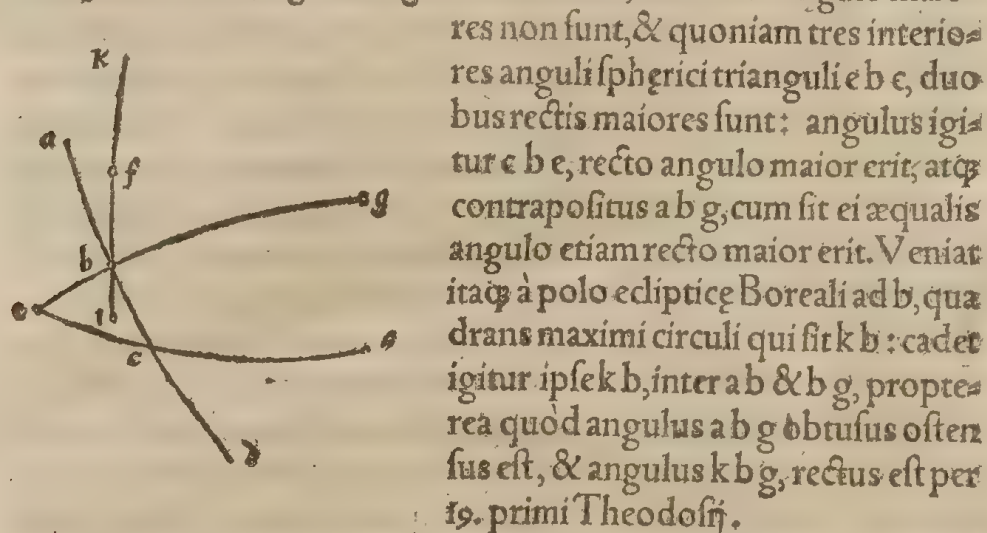 res non sunt, & quoniam tres interio⸗
res anguli sphęrici trianguli e b c, duo
bus rectis maiores sunt: angulus igi⸗
tur c b e, recto angulo maior erit, atꝗ
contrapositus a b g, cum sit ei æqualis
angulo etiam recto maior erit. Veniat
itaꝗ à polo eclipticę Boreali ad b, qua
drans maximi circuli qui sit k b : cadet
igitur ipse k b, inter a b & b g, propte⸗
rea quòd angulus a b g obtusus osten
sus est, & angulus k b g, rectus est per
19. primi Theodosij.
k
a
f
g
b
e
t
c
d